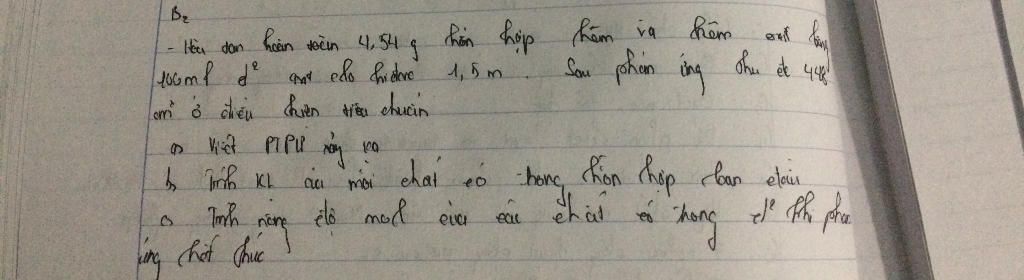 B2
- Hòa tan hoàn toàn 4,54 g hỗn hợp kẽm và kẽm oxit bằng
100ml d² axit clo hidric 1,5 m. Sau phản ứng thu đc 448
cm³ ở điều kiện tiêu chuẩn
a Viết PTPU xảy ra
b Tính KL của mỗi chất có trong hỗn hợp ban đầu
c Tính nồng độ mol của các chất có trong d² khi phản
ứng kết thúc